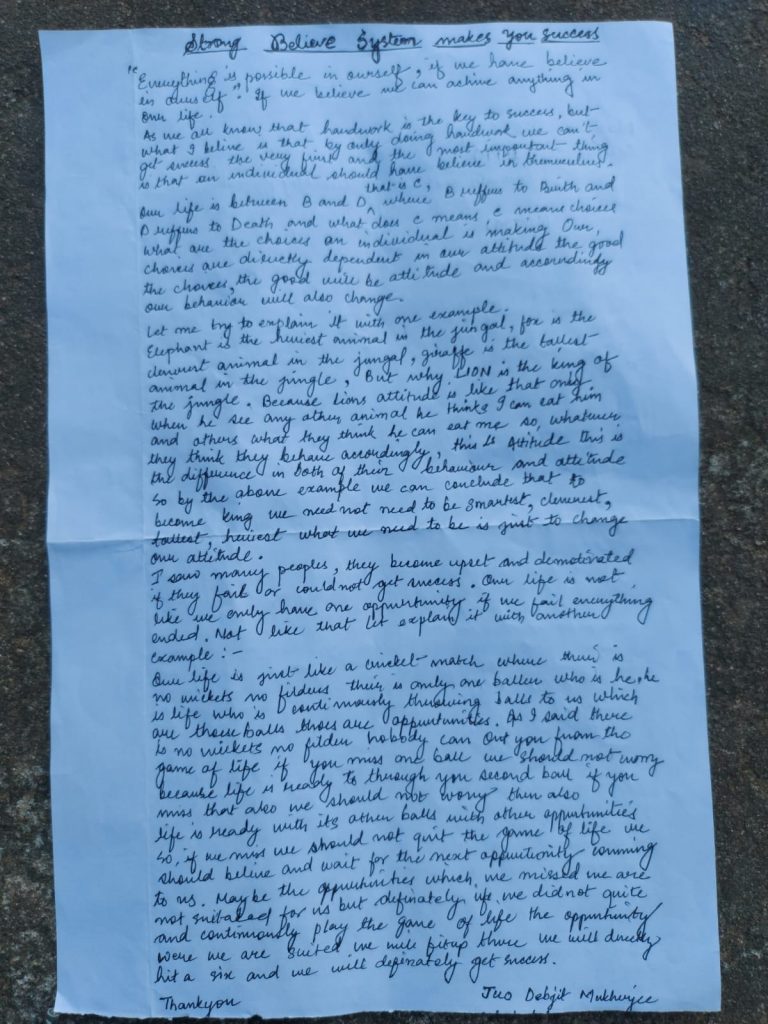 Strong Believe System makes you success
"Everything is possible in ourself, if we have believe
in ourself". If we believe we can achive anything in
our life.
As we all know that hardwork is the key to success, but
what I belive is that by only doing hardwork we can't
get success the very first and the most important thing
is that an individual should have believe in themselves.
that is C,
Our life is between B and D, where B reffers to Birth and
D reffers to Death and what does C means, C means choices
what are the choices an individual is making Our,
choices are directly dependent in our attitude the good
the choices, the good will be attitude and accordingly
our behavior will also change.
Let me try to explain it with one example.
Elephant is the heviest animal in the jungal, fox is the
cleverest animal in the jungal, giraffe is the tallest
animal in the jungle, But why LION is the king of
the jungle. Because lions attitude is like that only.
when he see any other animal he thinks I can eat him
and others what they think he can eat me so, whatever
they think they behave accordingly, this is Attitude this is
the difference in both of their behaviour and attetude
So by the above example we can conclude that to
become king we need not need to be smartest, cleverest,
tallest, heviest what we need to be is just to change
our attitude.
I saw many peoples, they become upset and demotivated
if they fail or could not get success. Our life is not
like we only have one oppurtunity if we fail everything
ended. Not like that let explain it with another
example :-
Our life is just like a cricket match where their is
no wickets no filders their is only one baller who is he, he
is life who is continuously throwing balls to us which
are those balls thoes are oppurtunities. As I said there
is no wickets no filder nobody can Out you from the
game of life if you miss one ball we should not worry
because life is ready to through you second ball if you
miss that also we should not worry then also
life is ready with its other balls with other oppurtunities
So, if we miss we should not quit the game of life we
should belive and wait for the next oppurtunity comming
to us. Maybe the oppurtunities which we missed we are
not suitabel for us but definately if we did not quite
and continuously play the game of life the oppurtunity
were we are suited we will fitup there we will direcly
hit a six and we will definately get success.
Thankyou Juo Debjit Mukherjee